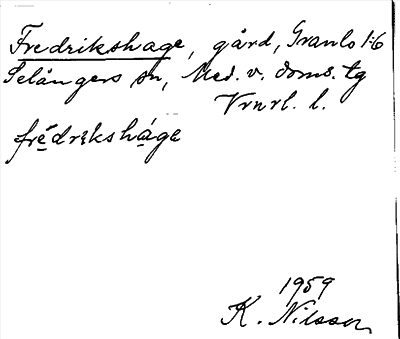 Fredrikshage, gård, Granlo 1:6
Selångers sn, Med. v. doms. tg
Vrnrl. l.
frédrikshága
1959
K. Nilsson